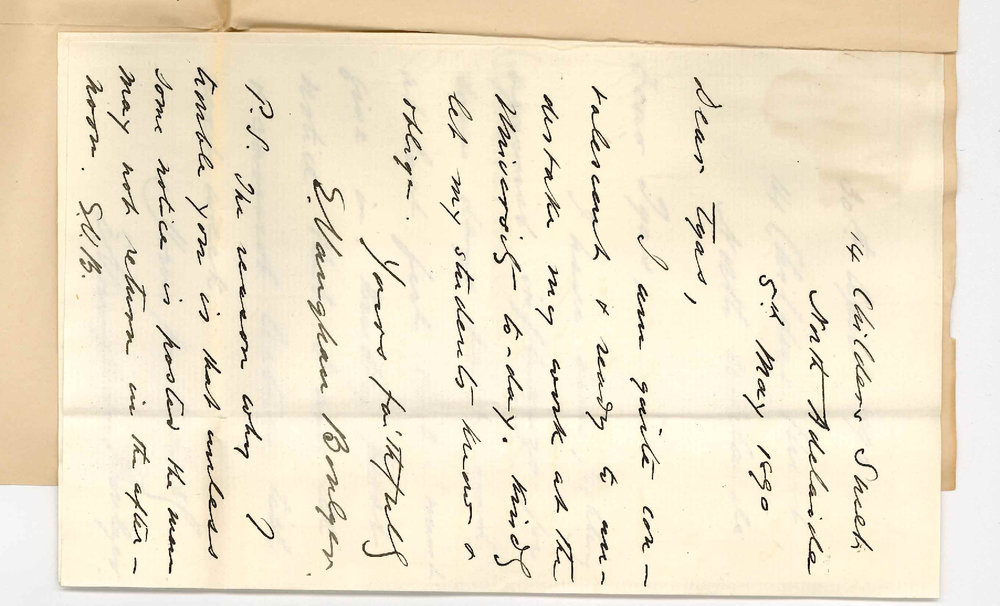 14 Childers Street
North Adelaide
5th May 1890
Dear Tyas,
I am quite con-
valescent & ready to un-
dertake my work at the
University to-day. Kindly
let my students know &
oblige.
Yours faithfully
E. Vaughan Boulger.
P.S. The reason why I
trouble you is that unless
some notice is posted the men
may not return in the after-
noon. E.V.B.